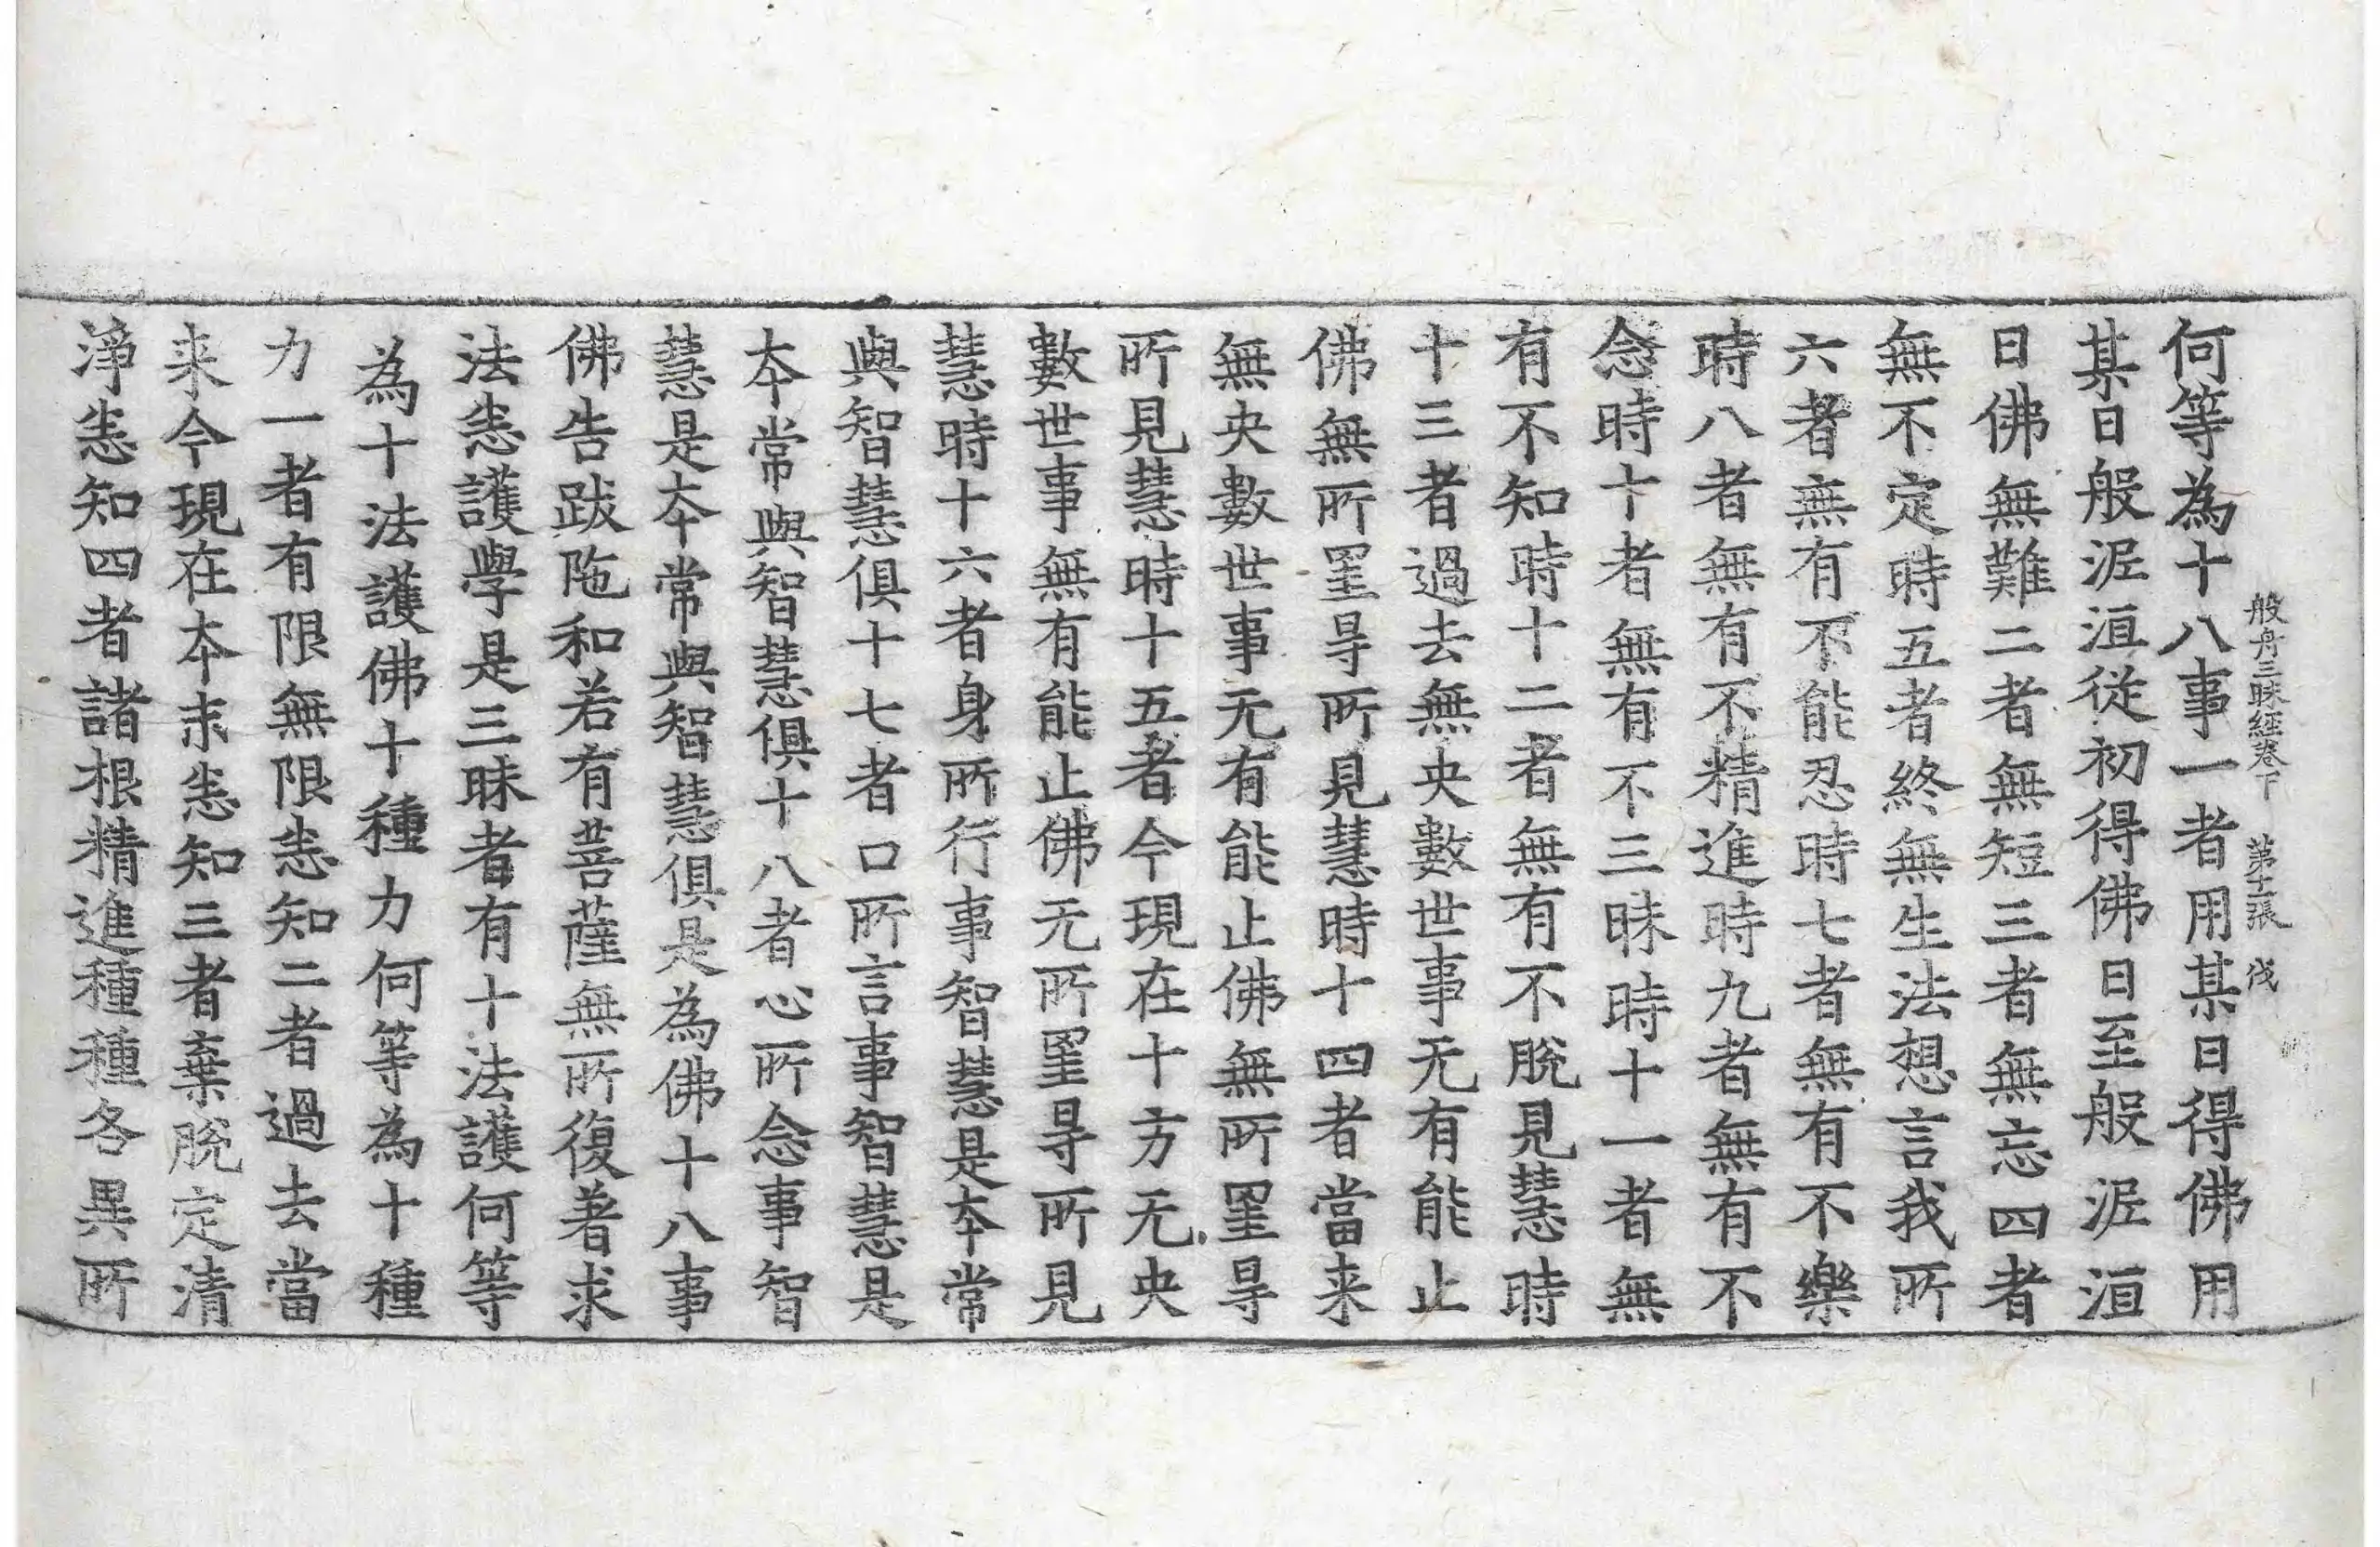 般舟三昧經卷下 第十二張 伐
何等為十八事一者用某日得佛用
某日般泥洹從初得佛日至般泥洹
日佛無難二者無短三者無忘四者
無不定時五者終無生法想言我所
六者無有不能忍時七者無有不樂
時八者無有不精進時九者無有不
念時十者無有不三昧時十一者無
有不知時十二者無有不脫見慧時
十三者過去無央數世事无有能止
佛無所罣㝵所見慧時十四者當来
無央數世事无有能止佛無所罣㝵
所見慧時十五者今現在十方无央
數世事無有能止佛无所罣㝵所見
慧時十六者身所行事智慧是夲常
與智慧俱十七者口所言事智慧是
夲常與智慧俱十八者心所念事智
慧是夲常與智慧俱是為佛十八事
佛告跋陁和若有菩薩無所復著求
法悉護學是三昧者有十法護何等
為十法護佛十種力何等為十種
力一者有限無限悉知二者過去當
来今現在夲末悉知三者棄脫定清
淨悉知四者諸根精進種種各異所